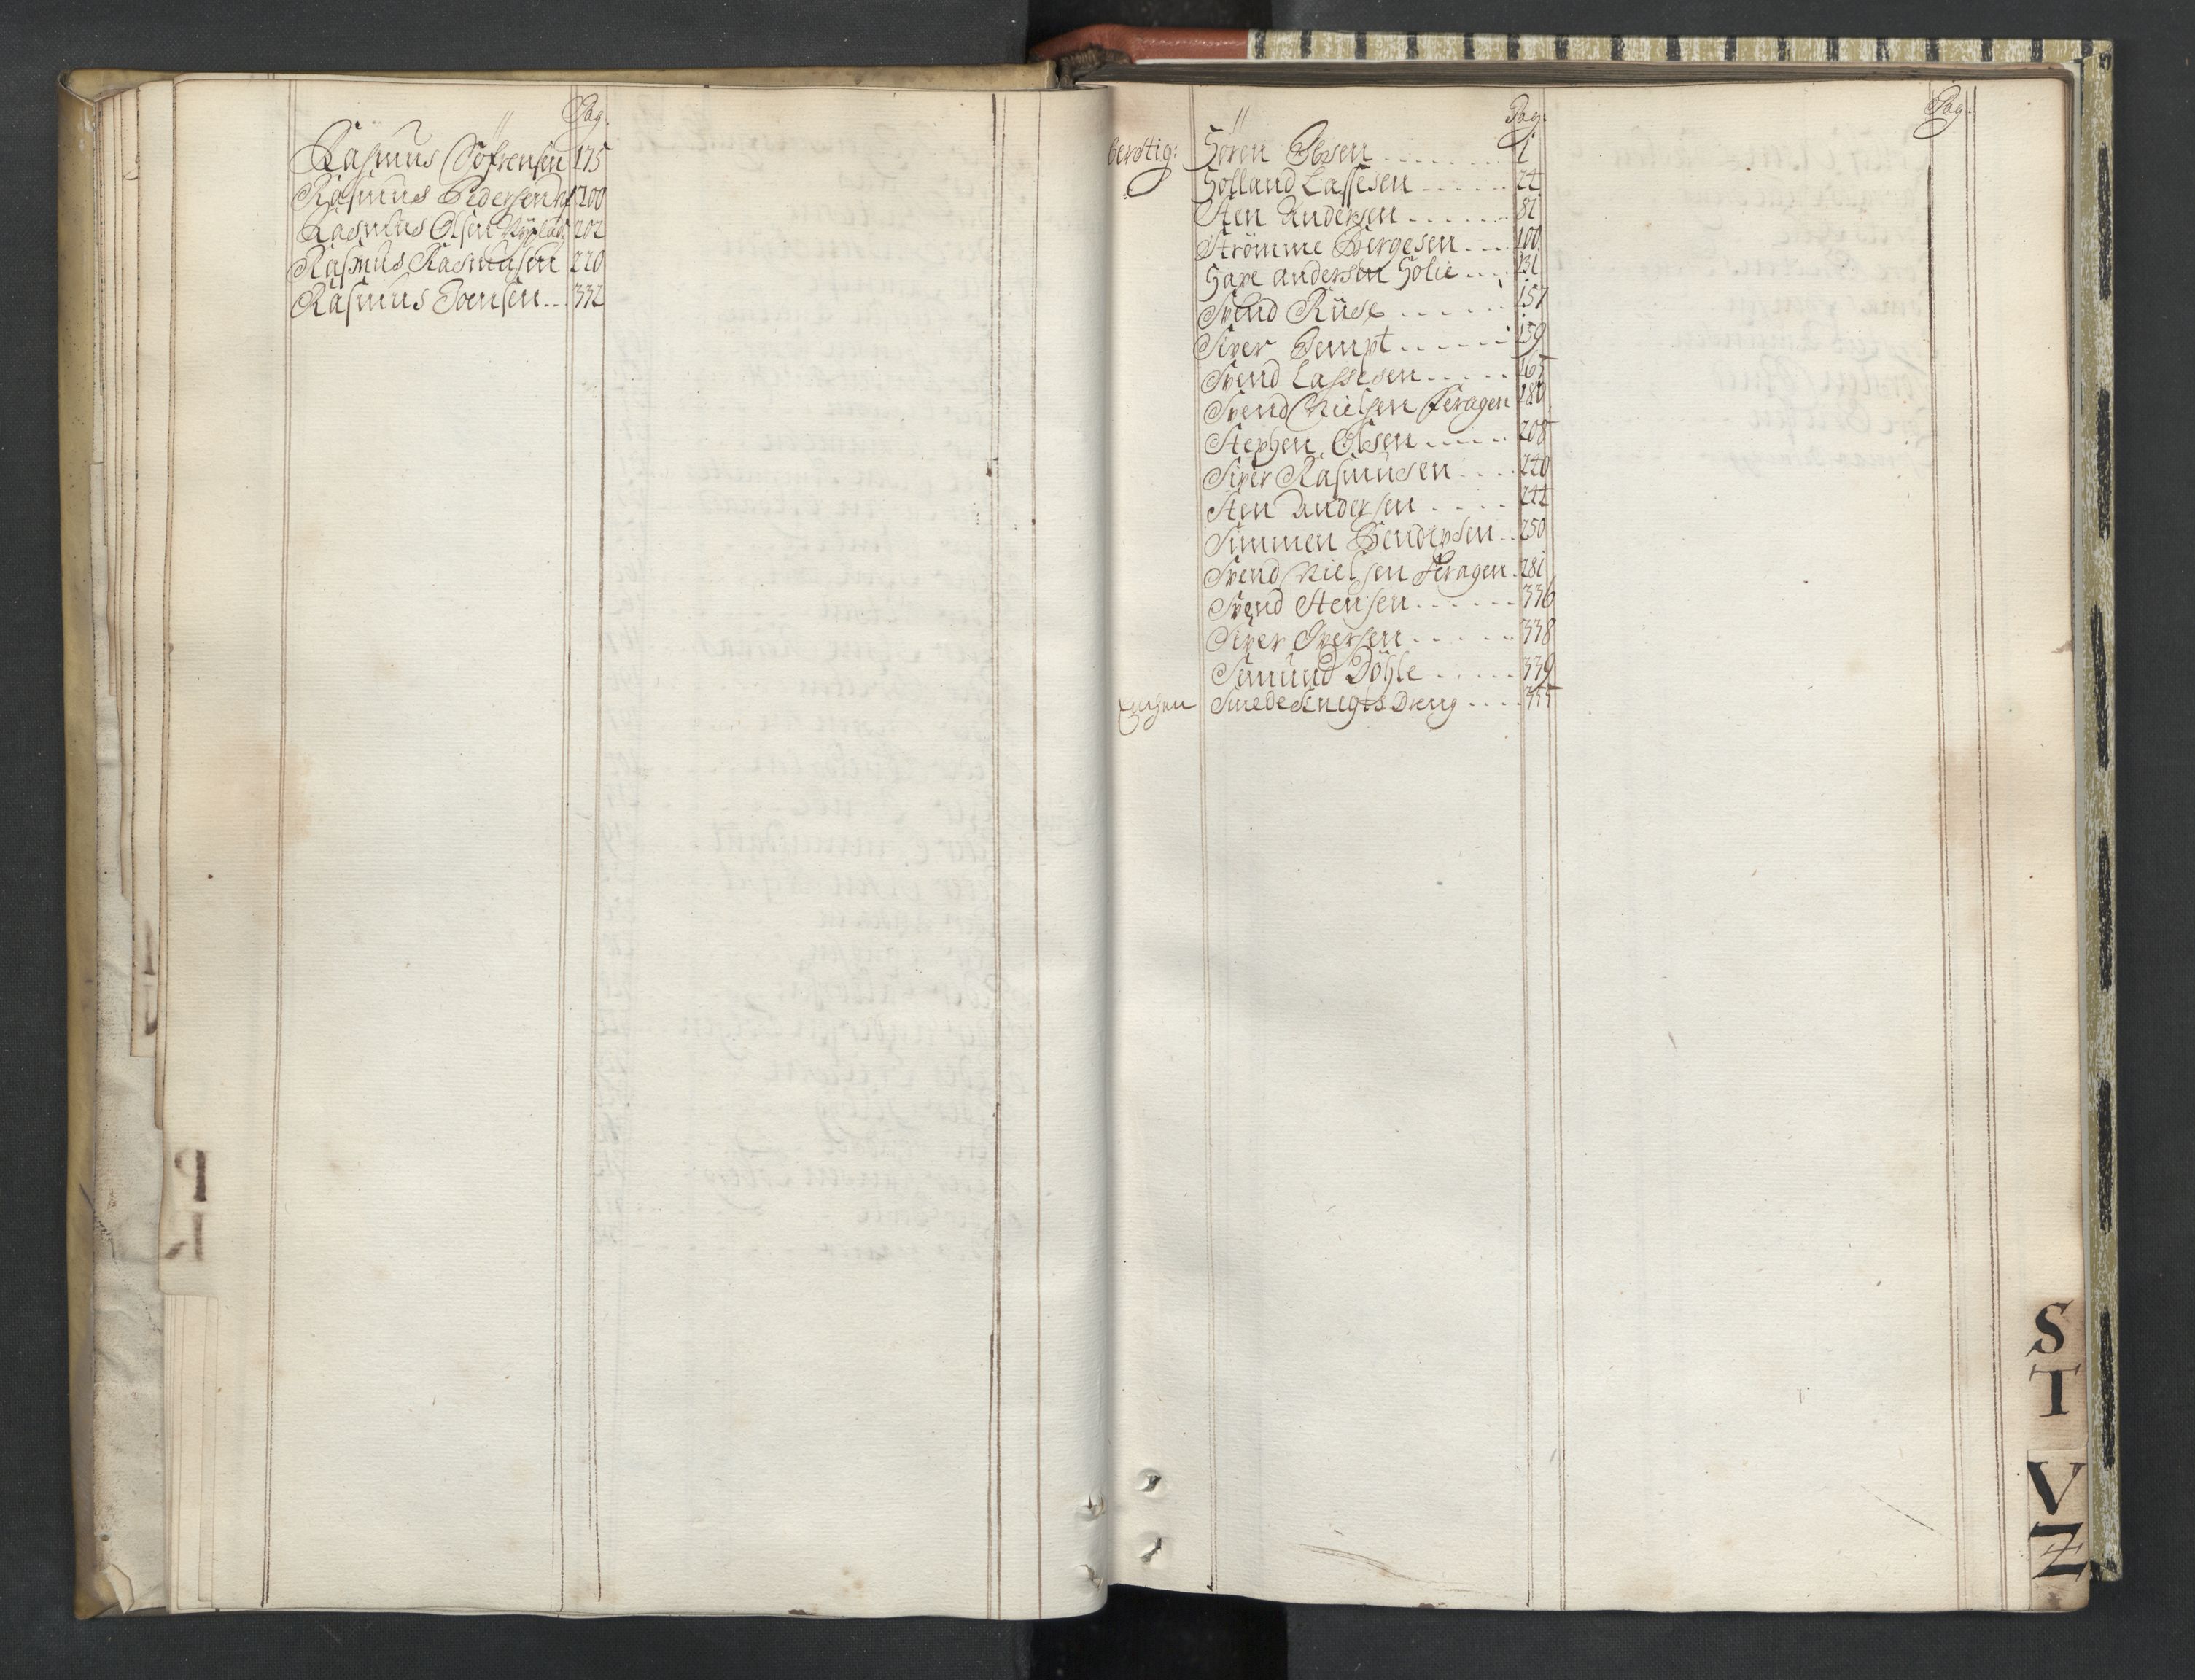 Pag:
Rasmus Söfrensen 175
Rasmus Pedersen 200
Rasmus Olsen 202
Rasmus Rasmusen 220
Rasmus Joensen .. 332
P
R
Pag:
Pag:
berstig: Sören Ibsen ........ 1
Holland Lassesen ...... 22
Sten Andersen ....... 82
Strömme Börgesen .... 100
Save Andersen Solie .... 131
Svend Rüse ...... 157
Siver Sempt ...... 159
Svend Lassesen ..... 165
Svend Nielsen Feragen 180
Stephen Olsen ..... 208
Siver Rasmusen .... 240
Sten Andersen .... 242
Simmen Hendrichsen .. 250
Svend Nielsen Feragen . 281
Svend Stensen ...... 336
Siver Iversen ...... 338
Semund Döhle ..... 339
Smede Knegts Dreng .... 355
S
T
V
Z